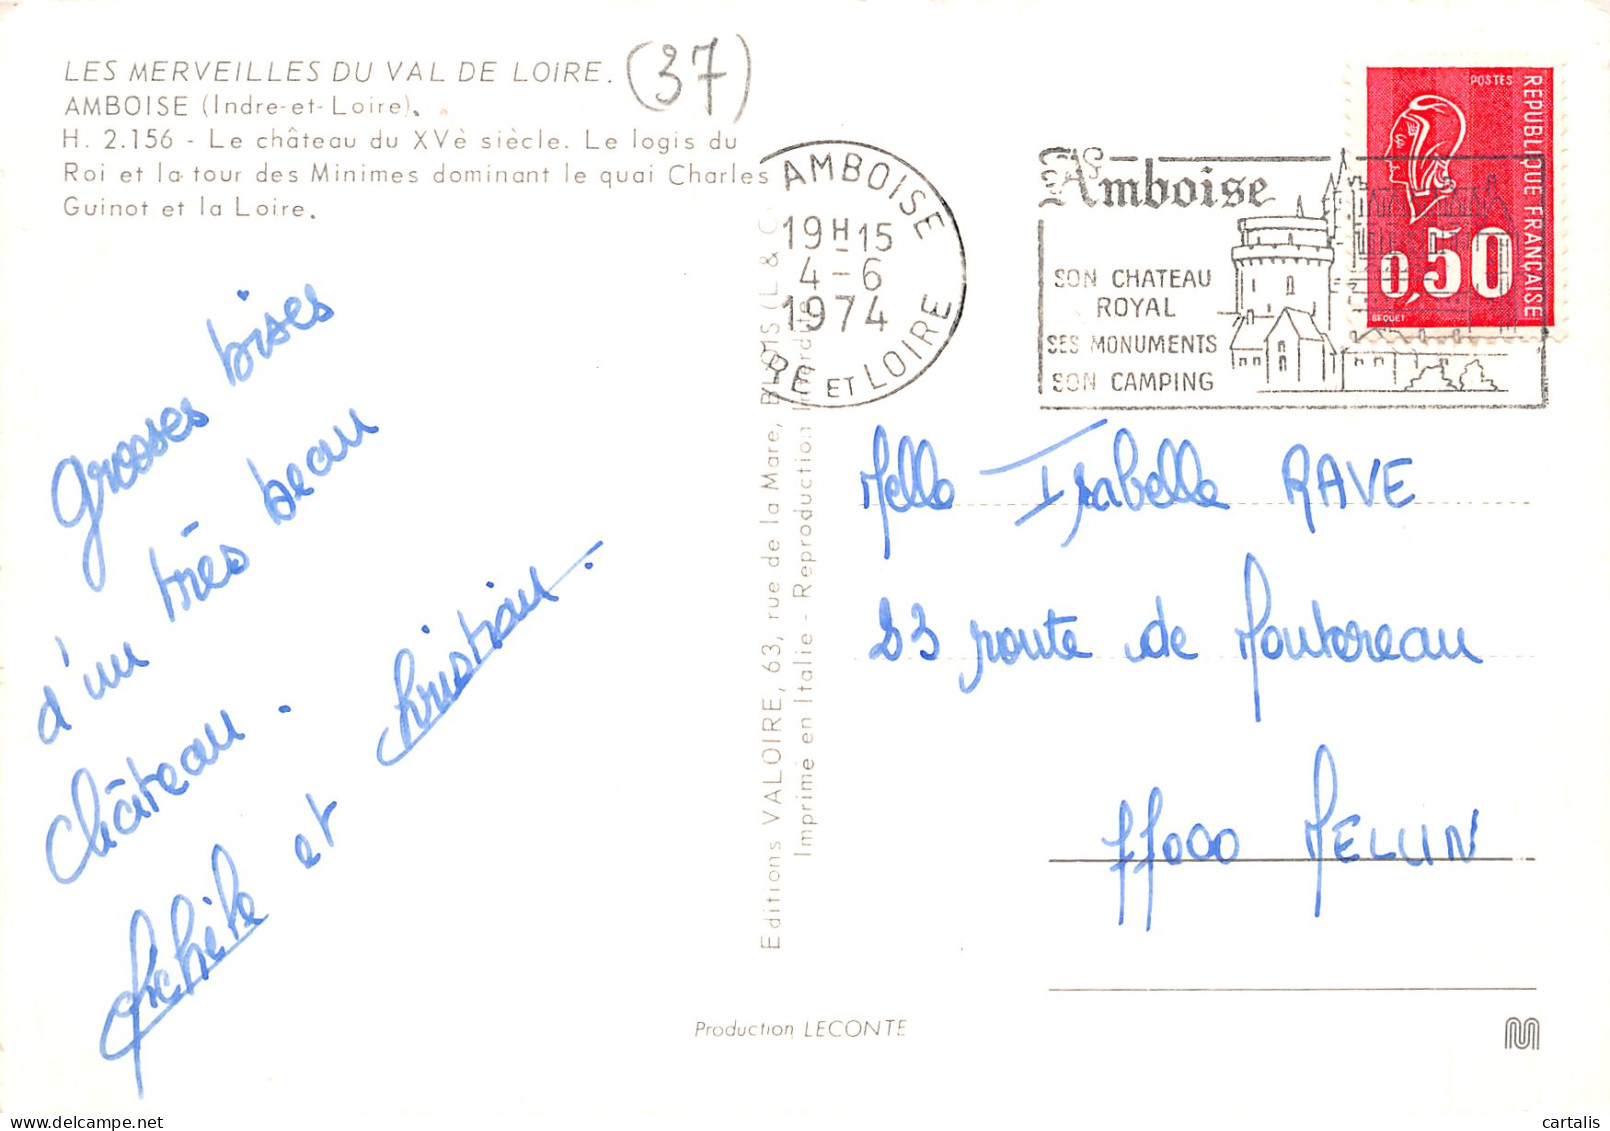 LES MERVEILLES DU VAL DE LOIRE.
(37)
AMBOISE (Indre-et-Loire).
H. 2.156 - Le château du XVè siècle. Le logis du
Roi et la tour des Minimes dominant le quai Charles
Guinot et la Loire.
AMBOISE
19H15
4-6
1974
RE ET LOIRE
Amboise
SON CHATEAU
ROYAL
SES MONUMENTS
SON CAMPING
POSTES
REPUBLIQUE FRANÇAISE
0,50
BEQUET
Grosses bises
d'un très beau
château.
et Christian.
Editions VALOIRE, 63, rue de la Mare, BLOIS (L & C)
Imprimé en Italie - Reproduction interdite
Melle Isabelle RAVE
23 route de Montereau
77000 MELUN
Production LECONTE
cartalis